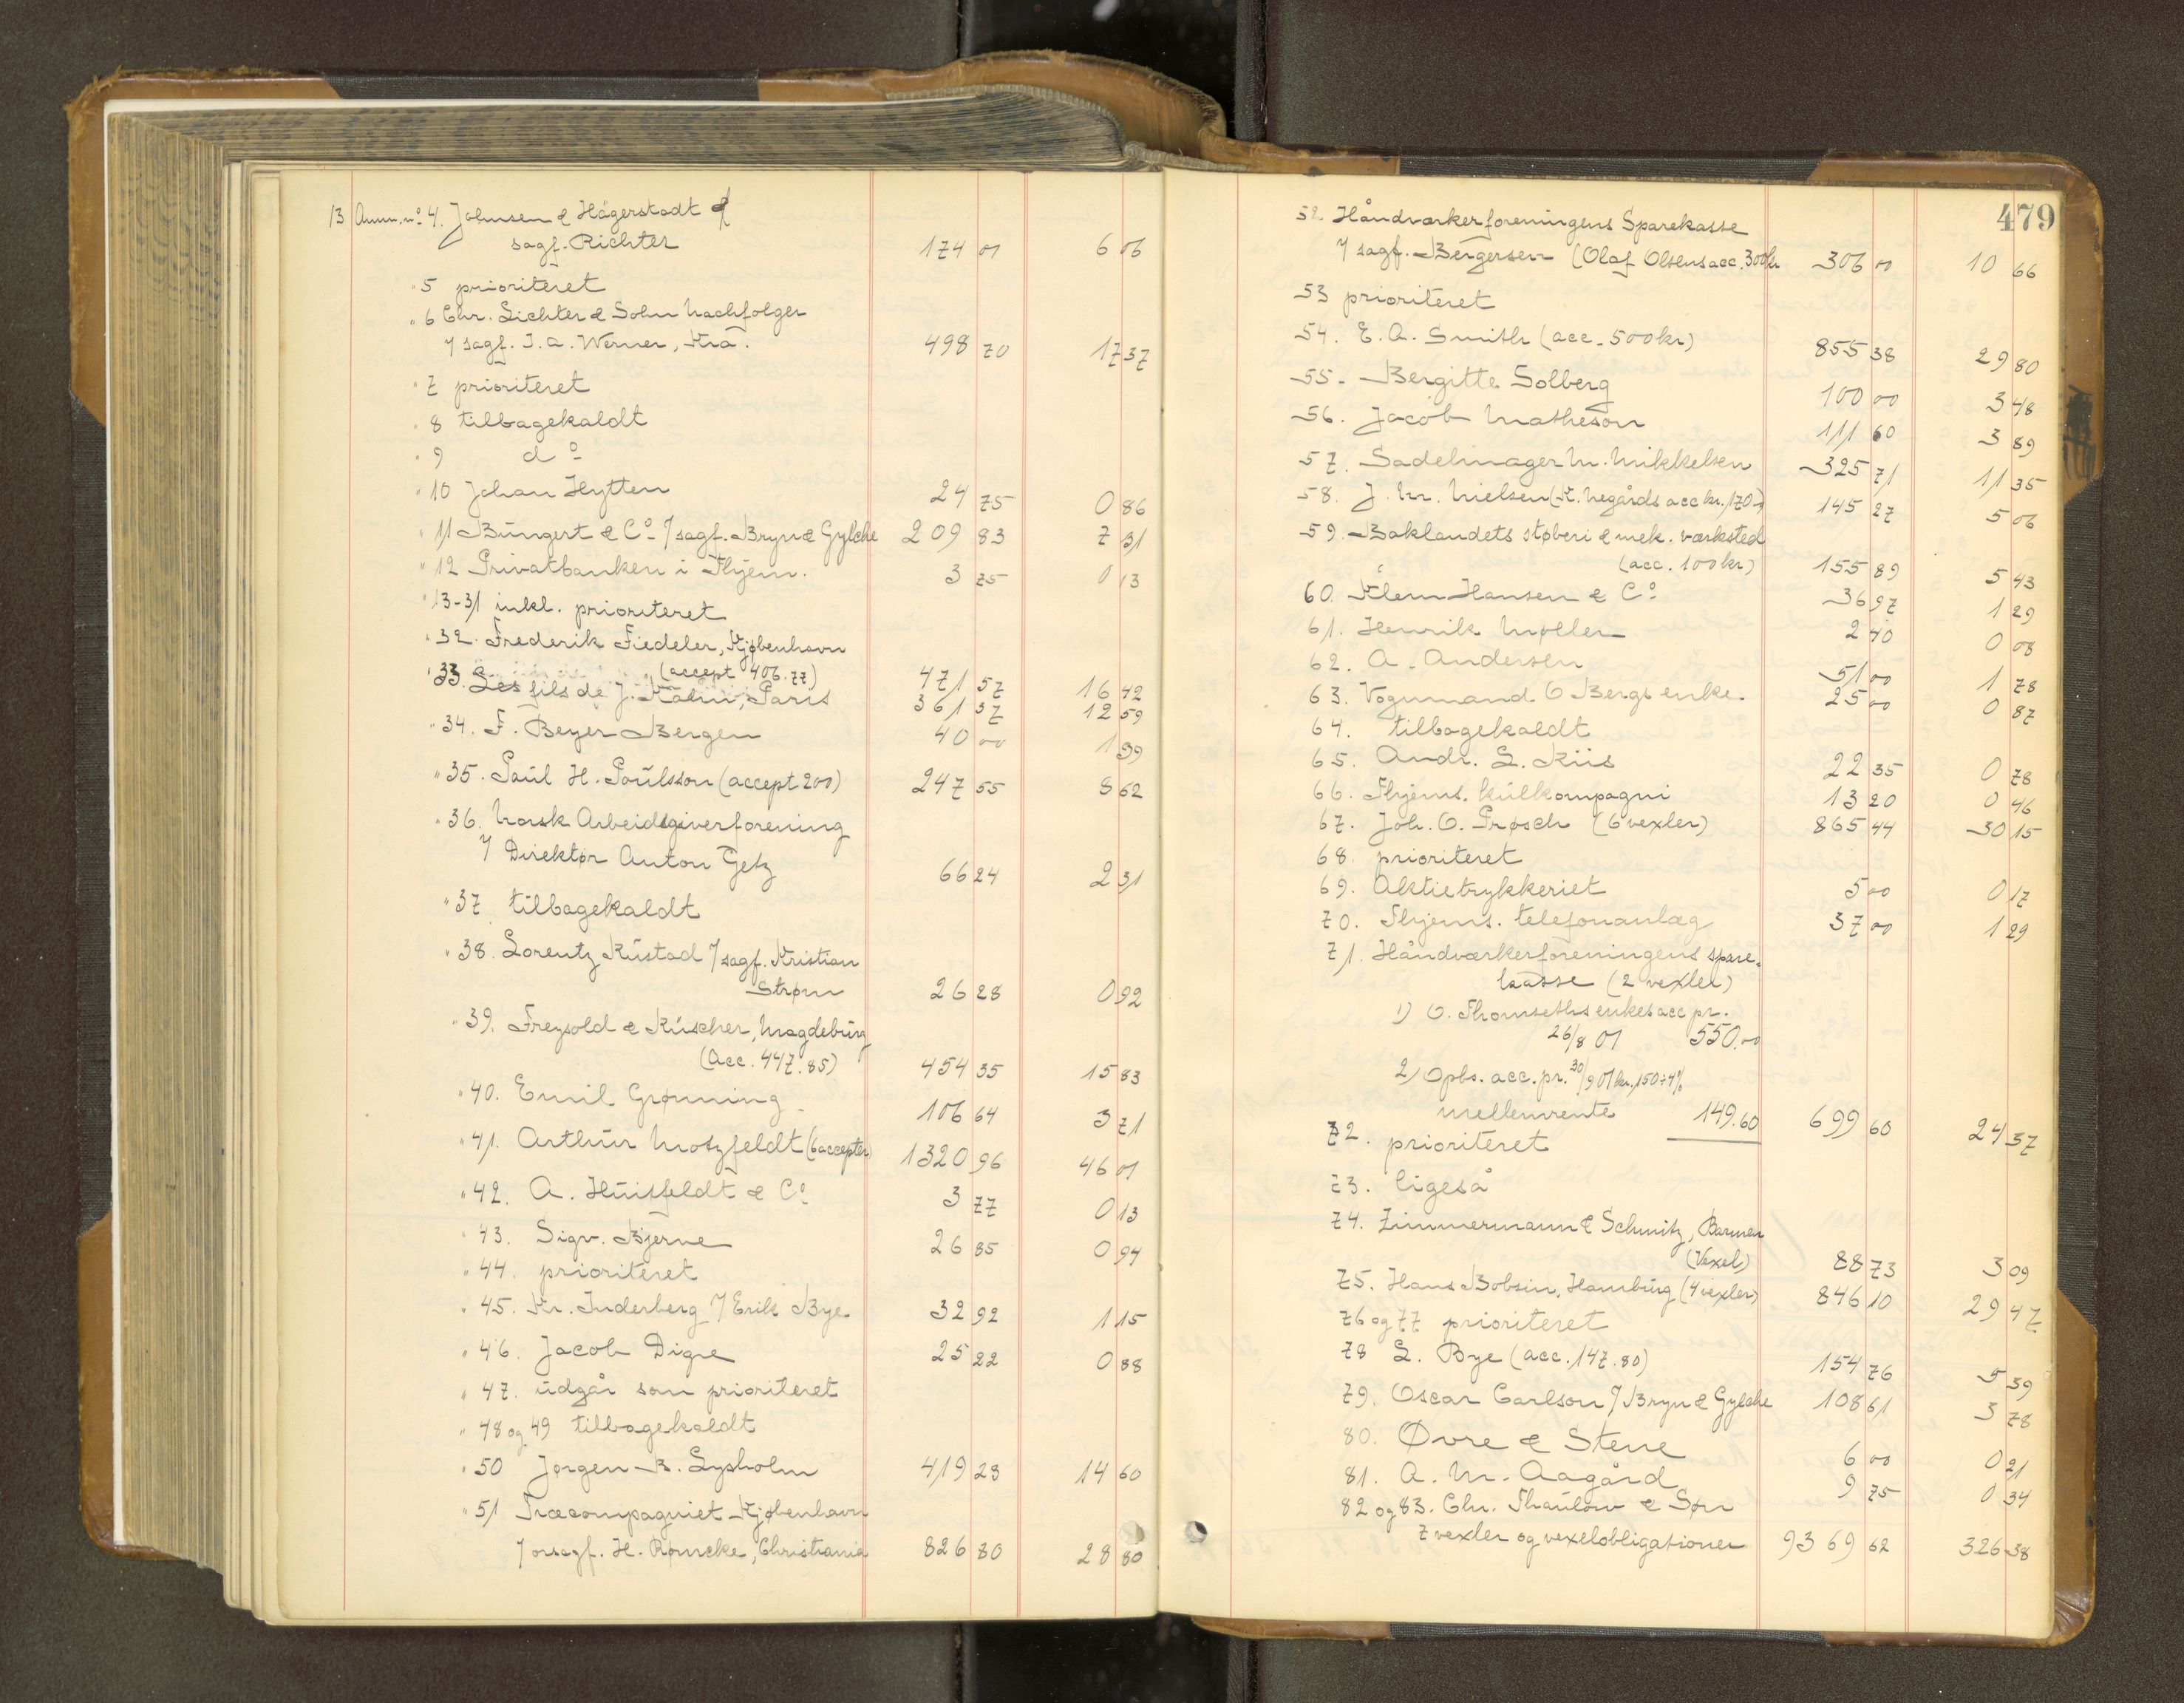 13 Anm. no 4. Johnsen & Hágerstadt
sagf. Richter 174 01 6 06
" 5 prioriteret
" 6 Chr. Lichter & Sohn Nachfolger
v/ sagf. I. A. Werner, Kra. 498 70 17 37
" 7 prioriteret
" 8 tilbagekaldt
" 9 do
" 10 Johan Hytten 24 75 0 86
" 11 Büngert & Co v/ sagf. Bryn & Gylche 209 83 7 31
" 12 Privatbanken i Thjem. 3 75 0 13
" 13-31 inkl. prioriteret
" 32 Frederik Fiedeler, Kjøbenhavn
(accept 406.77) 471 57 16 42
" 33. Les fils de J. Kahn, Paris 361 37 12 59
" 34. F. Beyer Bergen 40 00 1 39
" 35. Paul H. Poulsson (accept 200) 247 55 8 62
" 36. Norsk Arbeidsgiverforening
v/ Direktør Anton Jetz 66 24 2 31
" 37 tilbagekaldt
" 38. Lorentz Rustad v/ sagf. Kristian
Strøm 26 28 0 92
" 39. Freysold & Küscher, Magdeburg
(Acc. 447.85) 454 35 15 83
" 40. Emil Grønning 106 64 3 71
" 41. Arthur Motzfeldt (6 accepter) 1320 96 46 01
" 42. A. Huitfeldt & Co 3 77 0 13
" 43. Sigv. Bjerne 26 85 0 94
" 44. prioriteret
" 45. Kr. Inderberg v/ Erik Bye 32 92 1 15
" 46. Jacob Digre 25 22 0 88
" 47. udgår som prioriteret
" 48 og 49 tilbagekaldt
" 50 Jørgen B. Lysholm 419 23 14 60
" 51 Træcompagniet Kjøbenhavn
v/ orsagf. H. Rømcke, Christiania 826 80 28 80
479
52 Håndværkerforeningens Sparekasse
v/ sagf. Bergersen (Olaf Olsens acc. 300 kr 306 00 10 66
53 prioriteret
54. E. A. Smith (acc. 500 kr) 855 38 29 80
55. Bergitte Solberg 100 00 3 48
56. Jacob Matheson 111 60 3 89
57. Sadelmager M. Mikkelsen 325 71 11 35
58. J. M. Nielsen (K. Negårds acc kr. 170-) 145 27 5 06
59. Baklandets støberi & mek. værksted
(acc. 100 kr) 155 89 5 43
60. Klem Hansen & Co 36 97 1 29
61. Henrik Møller 2 40 0 08
62. A. Andersen 51 00 1 78
63. Vognmand O Bergs enke. 25 00 0 87
64. tilbagekaldt
65. Andr. L. Riis 22 35 0 78
66. Thjems. kulkompagni 13 20 0 46
67. Joh. O. Prøsch (6 vexler) 865 44 30 15
68. prioriteret
69. Aktietrykkeriet 5 00 0 17
70. Thjems. telefonanlæg 37 00 1 29
71. Håndværkerforeningens spare-
kasse (2 vexler)
1) O. Thomseths enkes acc pr.
26/8 01 550.00
2) Opls. acc. pr. 30/9 01 kr. 150 ÷ 4%
mellemrente 149.60 699 60 24 37
72. prioriteret
73. ligeså
74. Zimmermann & Schmitz, Barmen
(Vexel) 88 73 3 09
75. Hans Bobsin, Hamburg (4 vexler) 846 10 29 47
76 og 77 prioriteret
78 L. Bye (acc. 147.80) 154 76 5 39
79. Oscar Carlson v/ Bryn & Gylche 108 61 3 78
80. Øvre & Stene 6 00 0 21
81. A. M. Aagård 9 75 0 34
82 og 83. Chr. Thaulow & Søn
7 vexler og vexelobligationer 9369 62 326 38